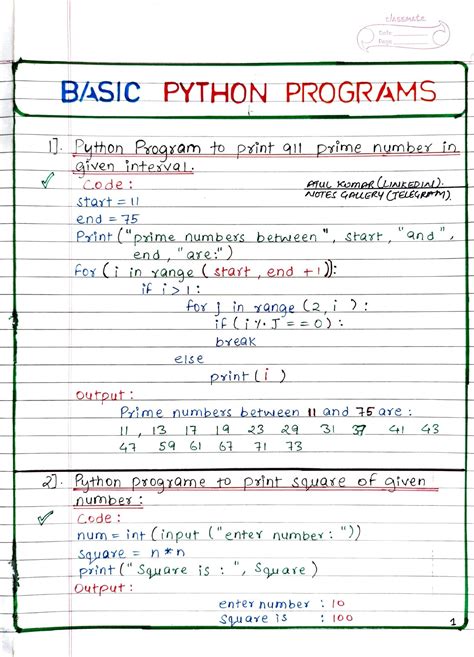 classmate
Date
Page
BASIC PYTHON PROGRAMS
1]. Python Program to print all prime number in
given interval.
Code :
ATUL KUMAR (LINKEDIN).
start = 11
NOTES GALLERY (TELEGRAM).
end = 75
Print ("prime numbers between", start, "and",
end, "are:")
For (i in range (start, end +1)):
if i > 1 :
for j in range (2, i) :
if (i % J == 0) :
break
else
print (i)
Output :
Prime numbers between 11 and 75 are :
11, 13 17 19 23 29 31 37 41 43
47 59 61 67 71 73
2]. Python programe to print square of given
number :
Code :
num = int (input ("enter number : "))
Square = n * n
print ("Square is : ", Square)
Output :
enter number : 10
square is : 100
1